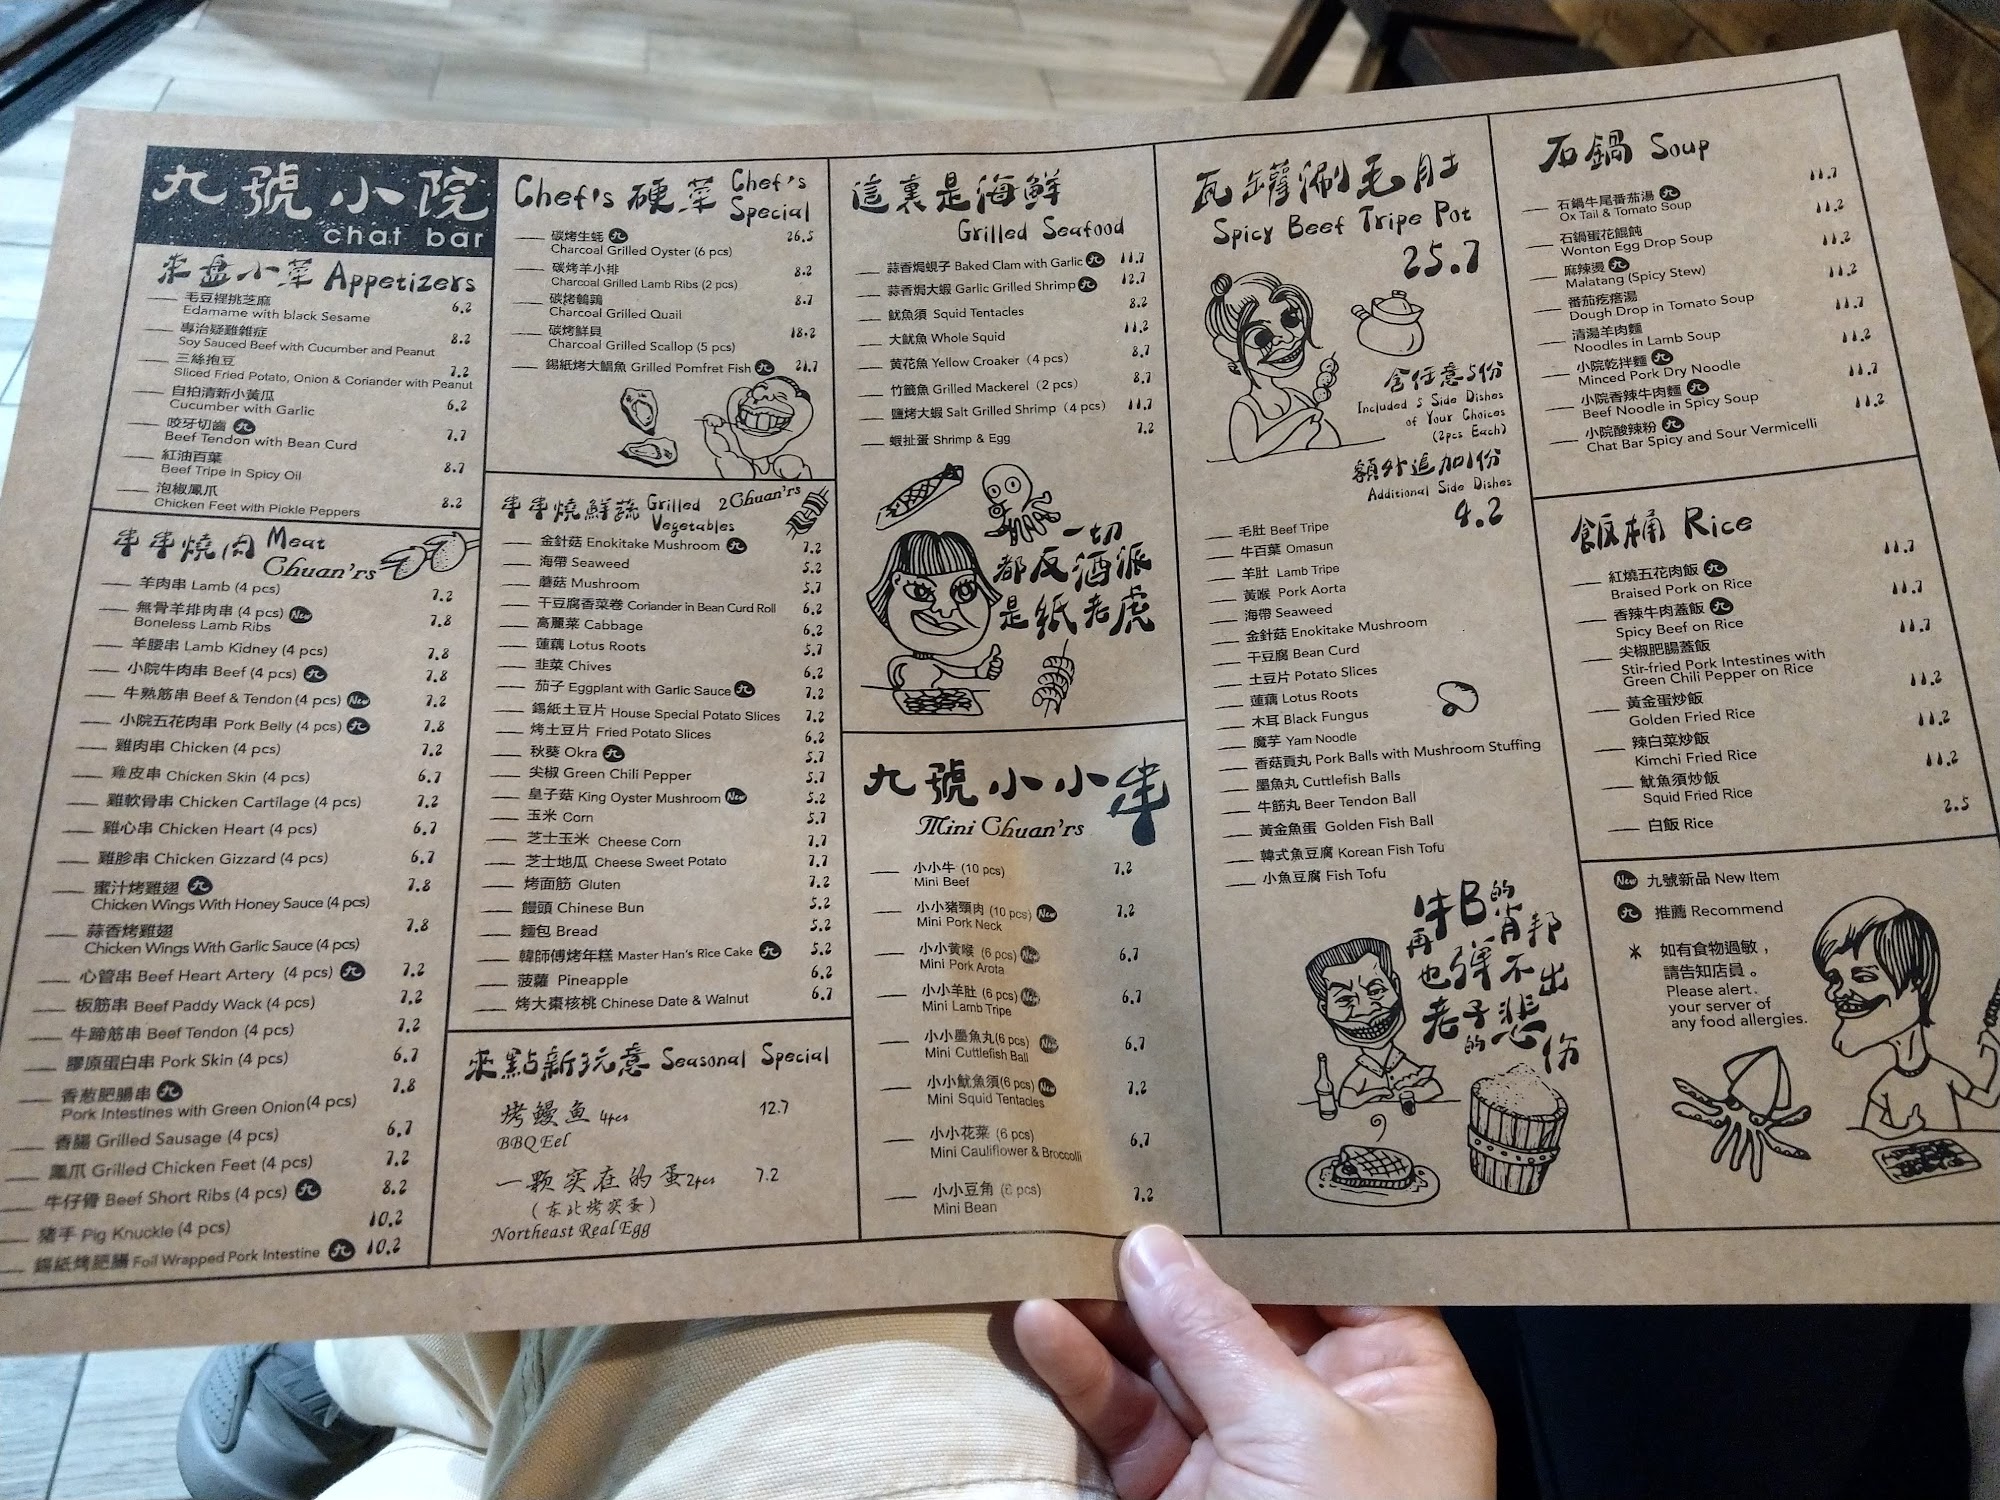 九號小院
chat bar
來盘小菜 Appetizers
毛豆裡挑芝麻 6.2
Edamame with black Sesame
專治疑難雜症 8.2
Soy Sauced Beef with Cucumber and Peanut
三絲抱豆 7.2
Sliced Fried Potato, Onion & Coriander with Peanut
自拍清新小黃瓜 6.2
Cucumber with Garlic
咬牙切齒 九 7.7
Beef Tendon with Bean Curd
紅油百葉 8.7
Beef Tripe in Spicy Oil
泡椒鳳爪 8.2
Chicken Feet with Pickle Peppers
串串燒肉 Meat Chuan'rs
羊肉串 Lamb (4 pcs) 7.2
無骨羊排肉串 (4 pcs) New 7.8
Boneless Lamb Ribs
羊腰串 Lamb Kidney (4 pcs) 7.8
小院牛肉串 Beef (4 pcs) 九 7.8
牛熟筋串 Beef & Tendon (4 pcs) New 7.2
小院五花肉串 Pork Belly (4 pcs) 九 7.8
雞肉串 Chicken (4 pcs) 7.2
雞皮串 Chicken Skin (4 pcs) 6.7
雞軟骨串 Chicken Cartilage (4 pcs) 7.2
雞心串 Chicken Heart (4 pcs) 6.7
雞胗串 Chicken Gizzard (4 pcs) 6.7
蜜汁烤雞翅 九 7.8
Chicken Wings With Honey Sauce (4 pcs)
蒜香烤雞翅 7.8
Chicken Wings With Garlic Sauce (4 pcs)
心管串 Beef Heart Artery (4 pcs) 九 7.2
板筋串 Beef Paddy Wack (4 pcs) 7.2
牛蹄筋串 Beef Tendon (4 pcs) 7.2
膠原蛋白串 Pork Skin (4 pcs) 6.7
香葱肥腸串 九 7.8
Pork Intestines with Green Onion (4 pcs)
香腸 Grilled Sausage (4 pcs) 6.7
鳳爪 Grilled Chicken Feet (4 pcs) 7.2
牛仔骨 Beef Short Ribs (4 pcs) 九 8.2
豬手 Pig Knuckle (4 pcs) 10.2
錫紙烤肥腸 Foil Wrapped Pork Intestine 九 10.2
Chef's 硬菜 Chef's Special
碳烤生蚝 九 26.5
Charcoal Grilled Oyster (6 pcs)
碳烤羊小排 8.2
Charcoal Grilled Lamb Ribs (2 pcs)
碳烤鵪鶉 8.7
Charcoal Grilled Quail
碳烤鮮貝 18.2
Charcoal Grilled Scallop (5 pcs)
錫紙烤大鯧魚 Grilled Pomfret Fish 九 21.7
串串燒鮮蔬 Grilled Vegetables 2 Chuan'rs
金針菇 Enokitake Mushroom 九 7.2
海帶 Seaweed 5.2
蘑菇 Mushroom 5.7
干豆腐香菜卷 Coriander in Bean Curd Roll 6.2
高麗菜 Cabbage 6.2
蓮藕 Lotus Roots 5.7
韭菜 Chives 6.2
茄子 Eggplant with Garlic Sauce 九 7.2
錫紙土豆片 House Special Potato Slices 7.2
烤土豆片 Fried Potato Slices 6.2
秋葵 Okra 九 5.7
尖椒 Green Chili Pepper 5.7
皇子菇 King Oyster Mushroom New 5.2
玉米 Corn 5.7
芝士玉米 Cheese Corn 7.7
芝士地瓜 Cheese Sweet Potato 7.7
烤面筋 Gluten 7.2
饅頭 Chinese Bun 5.2
麵包 Bread 5.2
韓師傅烤年糕 Master Han's Rice Cake 九 5.2
菠蘿 Pineapple 6.2
烤大棗核桃 Chinese Date & Walnut 6.7
來點新玩意 Seasonal Special
烤鳗鱼 4pcs 12.7
BBQ Eel
一颗实在的蛋 2pcs 7.2
(东北烤实蛋)
Northeast Real Egg
這裏是海鮮
Grilled Seafood
蒜香焗蜆子 Baked Clam with Garlic 九 11.7
蒜香焗大蝦 Garlic Grilled Shrimp 九 12.7
魷魚須 Squid Tentacles 8.2
大魷魚 Whole Squid 11.2
黄花魚 Yellow Croaker (4 pcs) 8.7
竹籤魚 Grilled Mackerel (2 pcs) 8.7
鹽烤大蝦 Salt Grilled Shrimp (4 pcs) 11.7
蝦扯蛋 Shrimp & Egg 7.2
一切
都反酒派
是紙老虎
九號小小串
Mini Chuan'rs
小小牛 (10 pcs) 7.2
Mini Beef
小小豬頸肉 (10 pcs) New 7.2
Mini Pork Neck
小小黃喉 (6 pcs) New 6.7
Mini Pork Arota
小小羊肚 (6 pcs) New 6.7
Mini Lamb Tripe
小小墨魚丸(6 pcs) New 6.7
Mini Cuttlefish Ball
小小魷魚須(6 pcs) New 7.2
Mini Squid Tentacles
小小花菜 (6 pcs) 6.7
Mini Cauliflower & Broccolli
小小豆角 pcs) 7.2
Mini Bean
瓦罐涮毛肚
Spicy Beef Tripe Pot
25.7
含任意5份
Included 5 Side Dishes
of Your Choices
(2pcs Each)
額外追加1份
Additional Side Dishes
4.2
毛肚 Beef Tripe
牛百葉 Omasun
羊肚 Lamb Tripe
黃喉 Pork Aorta
海帶 Seaweed
金針菇 Enokitake Mushroom
干豆腐 Bean Curd
土豆片 Potato Slices
蓮藕 Lotus Roots
木耳 Black Fungus
魔芋 Yam Noodle
香菇貢丸 Pork Balls with Mushroom Stuffing
墨魚丸 Cuttlefish Balls
牛筋丸 Beer Tendon Ball
黃金魚蛋 Golden Fish Ball
韓式魚豆腐 Korean Fish Tofu
小魚豆腐 Fish Tofu
牛B的肖邦
再也彈不出
老子的悲伤
石鍋 Soup
石鍋牛尾番茄湯 九 11.7
Ox Tail & Tomato Soup
石鍋蛋花餛飩 11.2
Wonton Egg Drop Soup
麻辣燙 九 11.2
Malatang (Spicy Stew)
番茄疙瘩湯 11.2
Dough Drop in Tomato Soup
清湯羊肉麵 11.7
Noodles in Lamb Soup
小院乾拌麵 九 11.2
Minced Pork Dry Noodle
小院香辣牛肉麵 九 11.7
Beef Noodle in Spicy Soup
小院酸辣粉 九 11.2
Chat Bar Spicy and Sour Vermicelli
飯桶 Rice
紅燒五花肉飯 九 11.7
Braised Pork on Rice
香辣牛肉蓋飯 九 11.7
Spicy Beef on Rice
尖椒肥腸蓋飯 11.7
Stir-fried Pork Intestines with
Green Chili Pepper on Rice
黃金蛋炒飯 11.2
Golden Fried Rice
辣白菜炒飯 11.2
Kimchi Fried Rice
魷魚須炒飯 11.2
Squid Fried Rice
白飯 Rice 2.5
New 九號新品 New Item
九 推薦 Recommend
* 如有食物過敏，
請告知店員。
Please alert.
your server of
any food allergies.